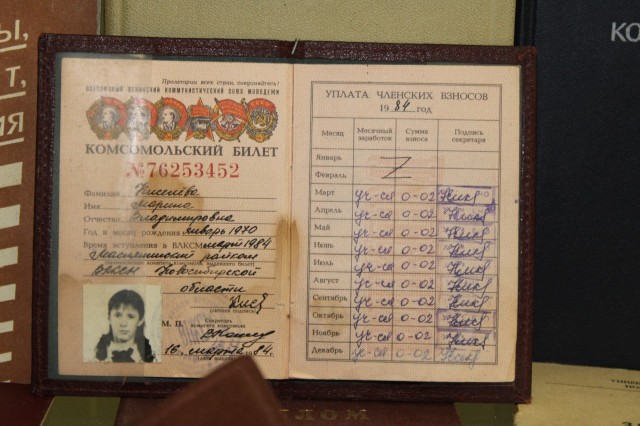 Ы,
Т,
ИЯ
Пролетарии всех стран, соединяйтесь!
ВСЕСОЮЗНЫЙ ЛЕНИНСКИЙ КОММУНИСТИЧЕСКИЙ СОЮЗ МОЛОДЕЖИ
КОМСОМОЛЬСКИЙ БИЛЕТ
№76253452
Фамилия Киселева
Имя Марина
Отчество Владимировна
Год и месяц рождения январь 1970
Время вступления в ВЛКСМ март 1984
Маслянинский райком
ВЛКСМ Новосибирской
области
М. П. Секретарь
16 марта 1984 г.
УПЛАТА ЧЛЕНСКИХ ВЗНОСОВ
1984 год
Месяц Месячный заработок Сумма взноса Подпись секретаря
Январь
Февраль
Март уч-ся 0-02
Апрель уч-ся 0-02
Май уч-ся 0-02
Июнь уч-ся 0-02
Июль уч-ся 0-02
Август уч-ся 0-02
Сентябрь уч-ся 0-02
Октябрь уч-ся 0-02
Ноябрь уч-ся 0-02
Декабрь уч-ся 0-02
КО
ЛОМ